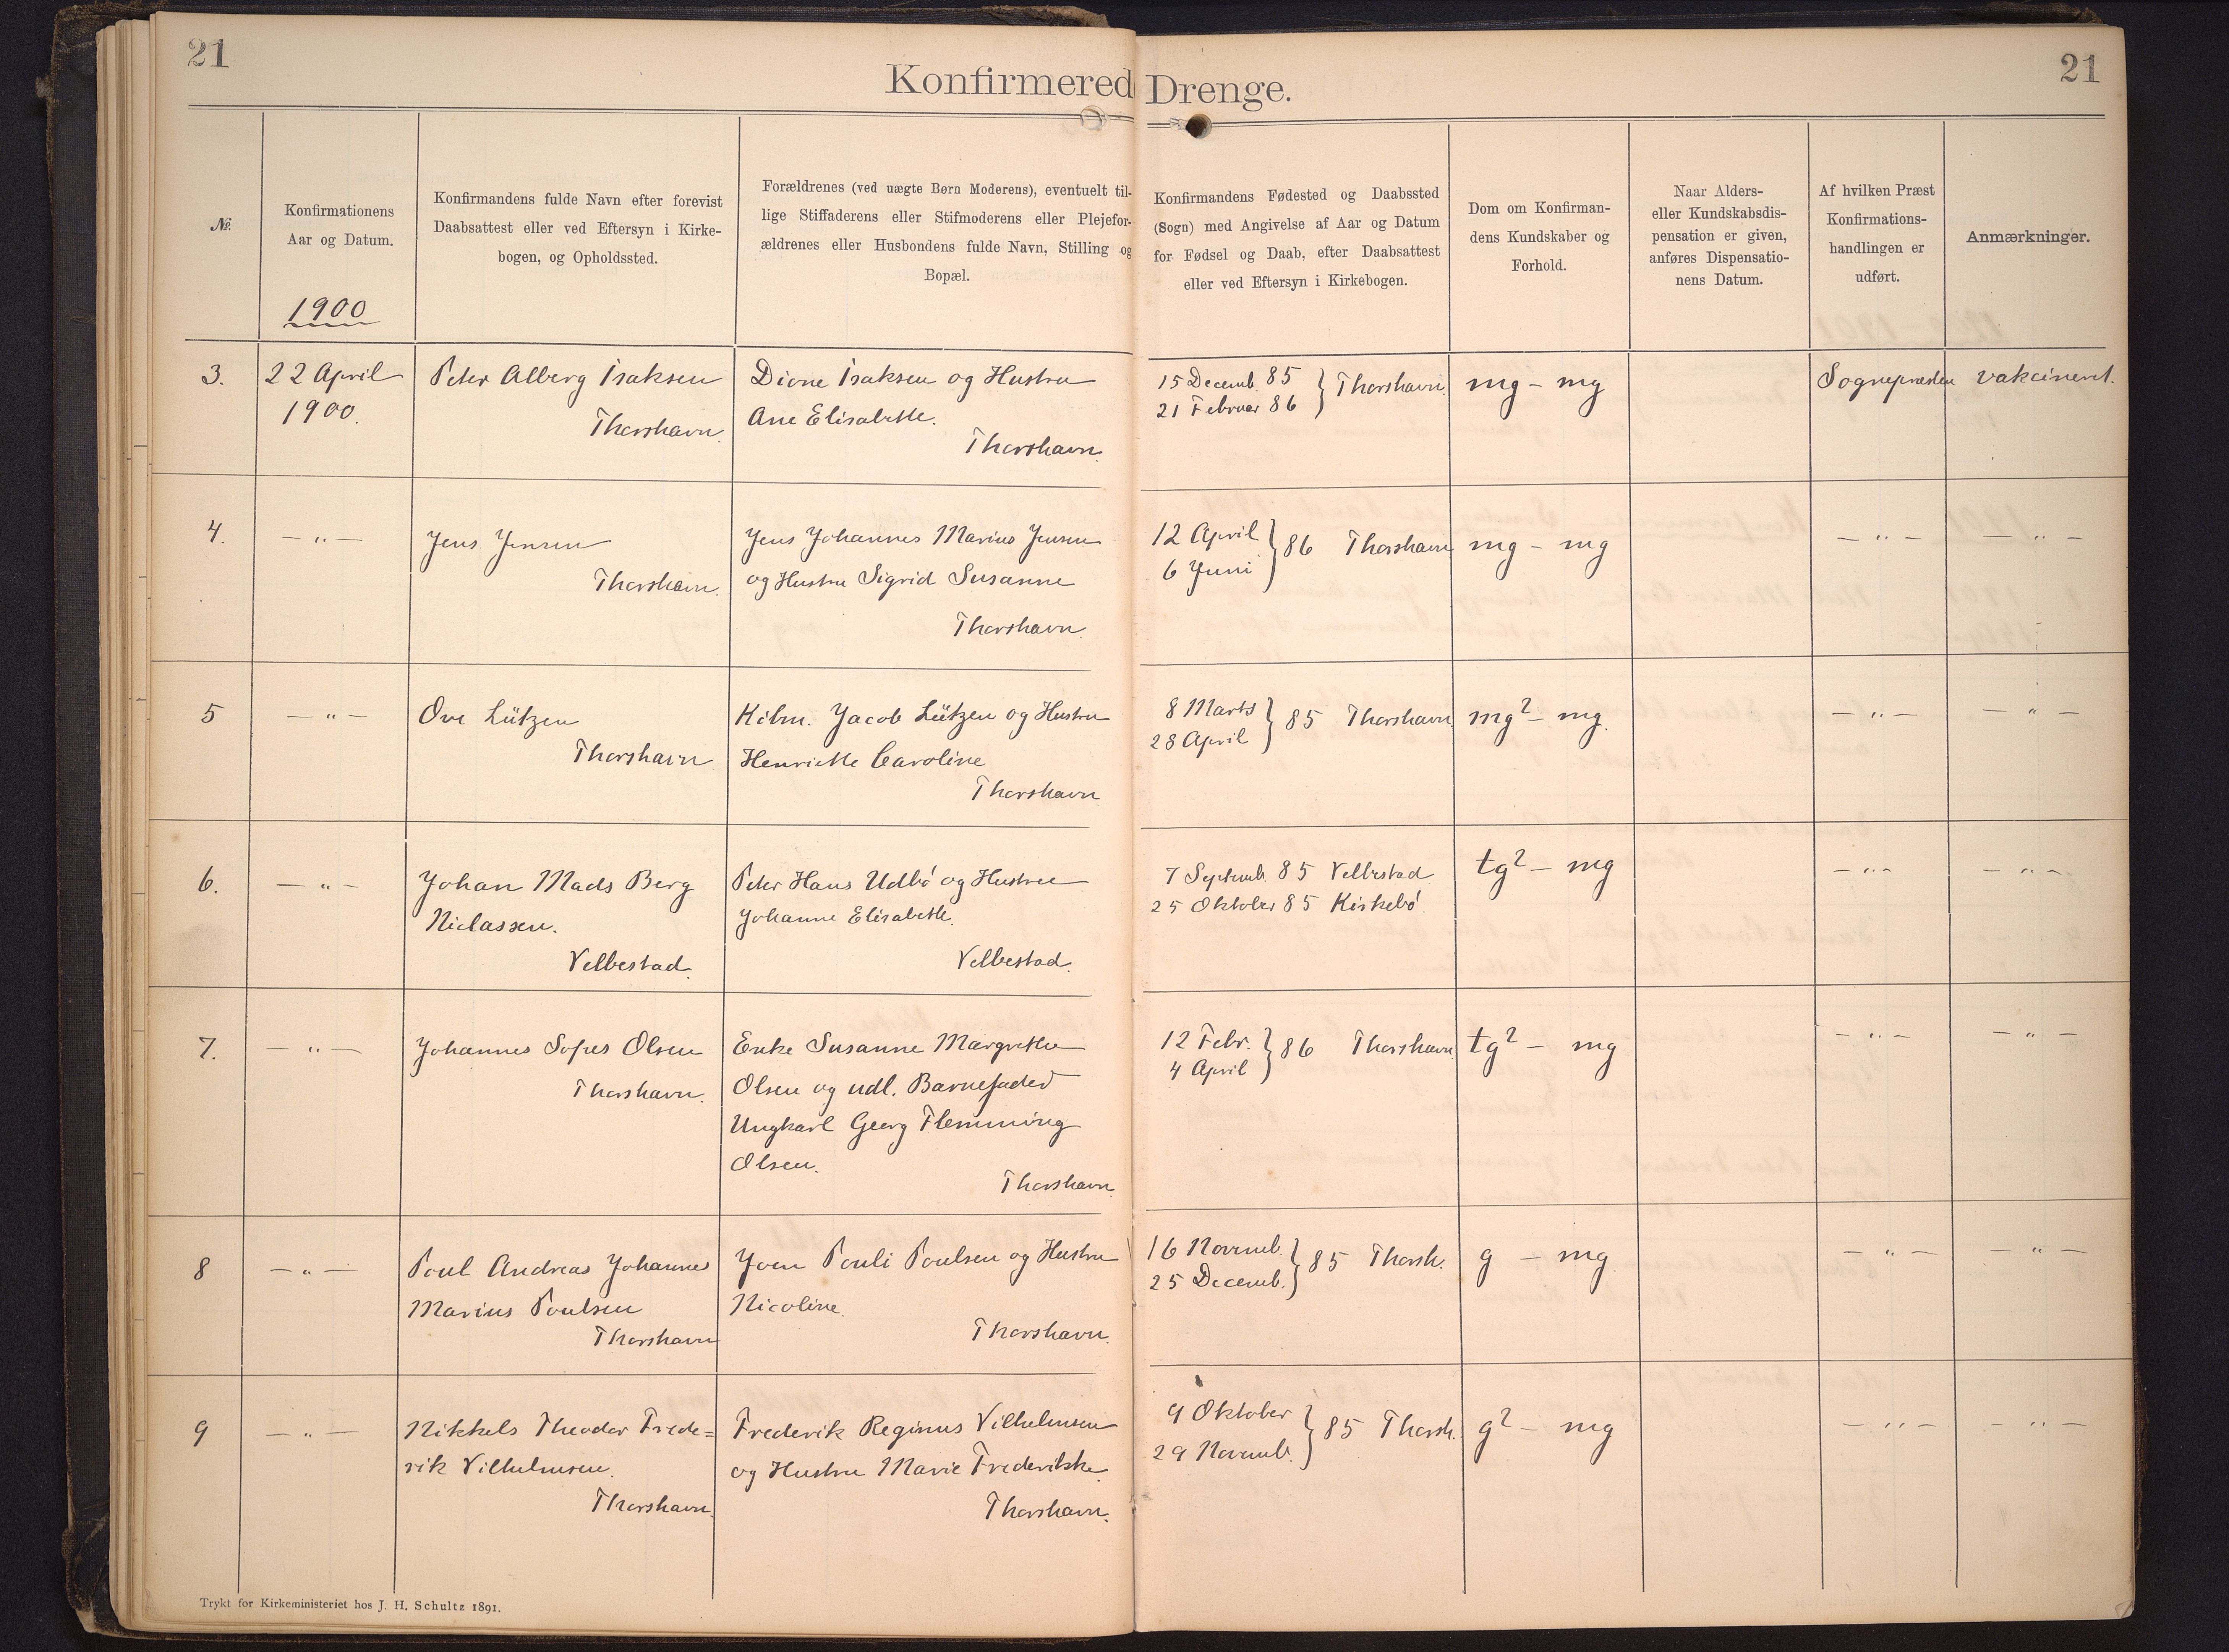 21
Konfirmerede Drenge.
21
№.
Konfirmationens
Aar og Datum.
1900
Konfirmandens fulde Navn efter forevist
Daabsattest eller ved Eftersyn i Kirke-
bogen, og Opholdssted.
Forældrenes (ved uægte Børn Moderens), eventuelt til-
lige Stiffaderens eller Stifmoderens eller Plejefor-
ældrenes eller Husbondens fulde Navn, Stilling og
Bopæl.
Konfirmandens Fødested og Daabssted
(Sogn) med Angivelse af Aar og Datum
for Fødsel og Daab, efter Daabsattest
eller ved Eftersyn i Kirkebogen.
Dom om Konfirman-
dens Kundskaber og
Forhold.
Naar Alders-
eller Kundskabsdis-
pensation er given,
anføres Dispensatio-
nens Datum.
Af hvilken Præst
Konfirmations-
handlingen er
udført.
Anmærkninger.
3.
22 April
1900.
Peter Alberg Isaksen
Thorshavn.
Dione Isaksen og Hustru
Ane Elisabeth.
Thorshavn.
15 Decemb. 85
21 Februar 86
} Thorshavn.
mg - mg
Sognepræsten
vakcineret.
4.
— „ —
Jens Jensen
Thorshavn.
Jens Johannes Marius Jensen
og Hustru Sigrid Susanne
Thorshavn.
12 April
6 Juni
} 86 Thorshavn
mg - mg
— „ —
— „ —
5
— „ —
Ove Lützen
Thorshavn.
Kjbm. Jacob Lützen og Hustru
Henriette Caroline
Thorshavn
8 Marts
28 April
} 85 Thorshavn.
mg² - mg.
— „ —
— „ —
6.
— „ —
Johan Mads Berg
Niclassen.
Velbestad.
Peter Hans Udbø og Hustru
Johanne Elisabeth.
Velbestad.
7 Septemb. 85 Velbestad
25 Oktober 85 Kirkebø.
tg² - mg
— „ —
— „ —
7.
— „ —
Johannes Sofus Olsen
Thorshavn.
Enke Susanne Margrethe
Olsen og udl. Barnefader
Ungkarl Georg Flemming
Olsen.
Thorshavn.
12 Febr.
4 April
} 86 Thorshavn
tg² - mg
— „ —
— „ —
8
— „ —
Poul Andreas Johannes
Marius Poulsen
Thorshavn
Joen Pouli Poulsen og Hustru
Nicoline.
Thorshavn.
16 Novemb.
25 Decemb.
} 85 Thorsh.
g - mg
— „ —
— „ —
9
— „ —
Nikkels Theodor Frede=
rik Vilhelmsen.
Thorshavn.
Frederik Reginus Vilhelmsen
og Hustru Marie Frederikke.
Thorshavn.
9 Oktober
29 Novemb.
} 85 Thorsh.
g² - mg
— „ —
— „ —
Trykt for Kirkeministeriet hos J. H. Schultz 1891.